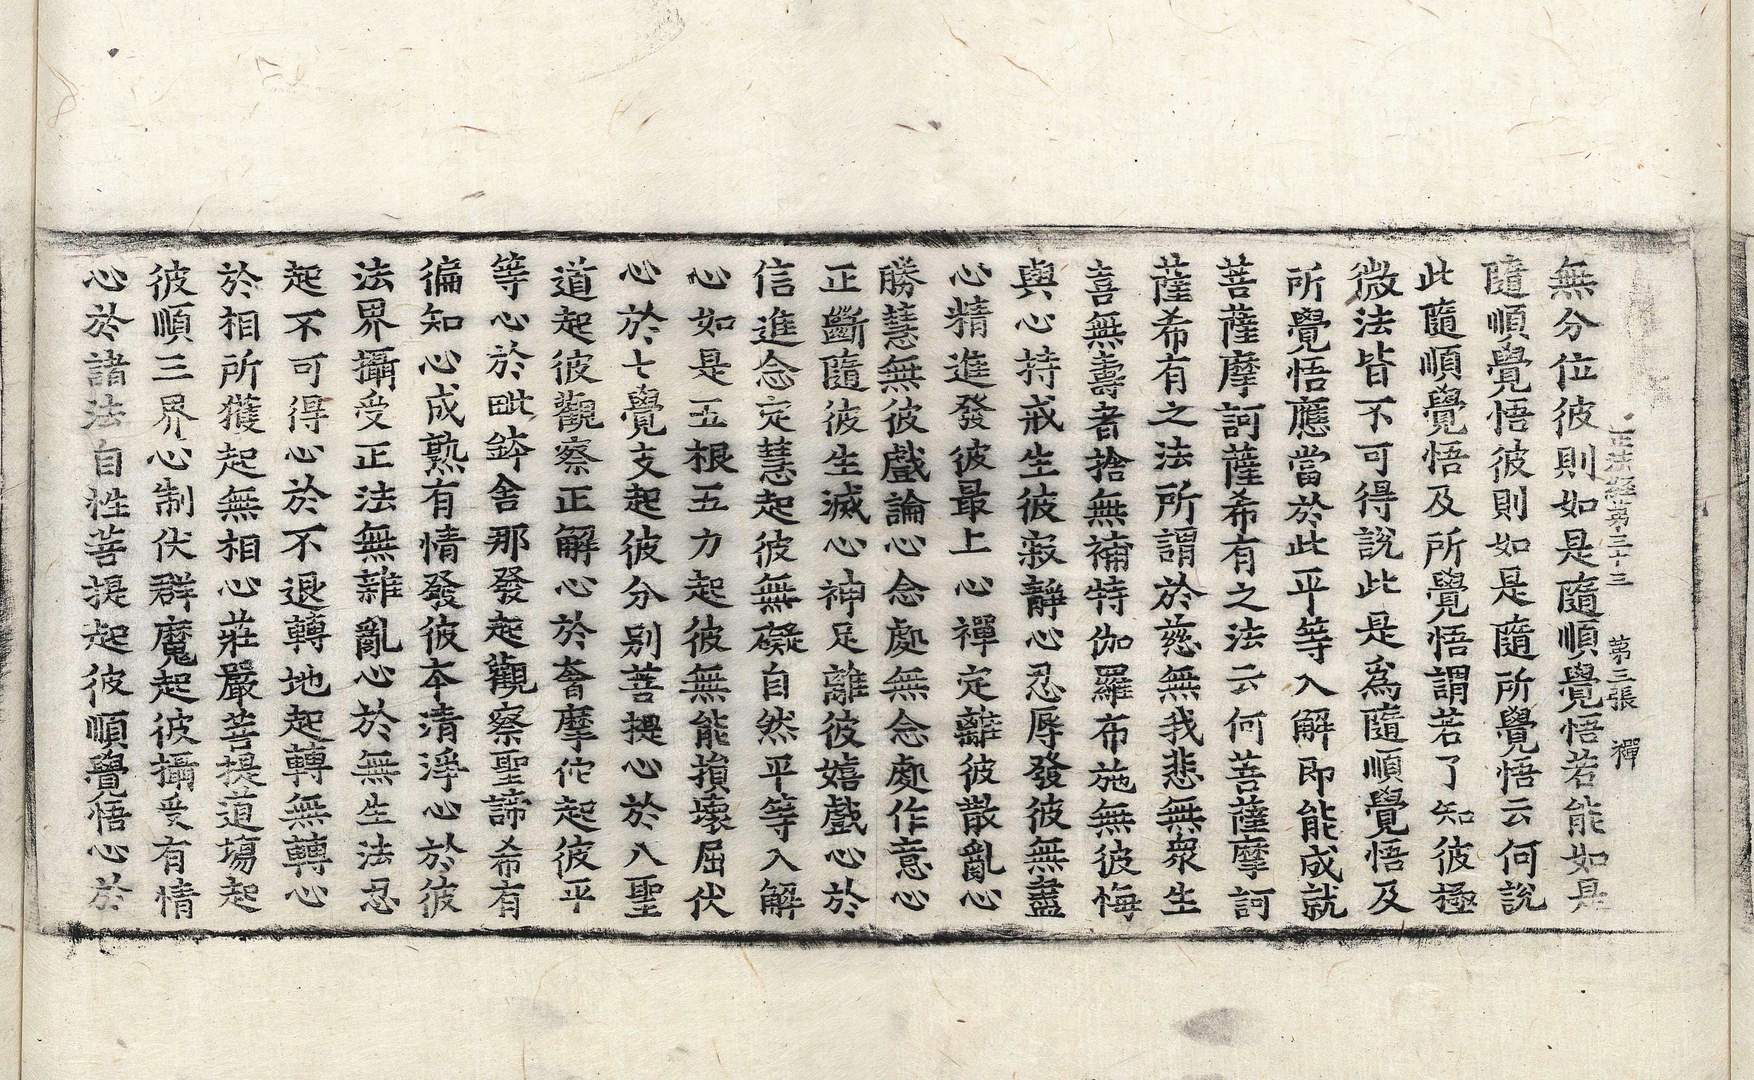 正法經第三十三 第三張 禪
無分位彼則如是隨順覺悟若能如是
隨順覺悟彼則如是隨所覺悟云何說
此隨順覺悟及所覺悟謂若了知彼極
微法皆不可得說此是爲隨順覺悟及
所覺悟應當於此平等入解即能成就
菩薩摩訶薩希有之法云何菩薩摩訶
薩希有之法所謂於慈無我悲無衆生
喜無壽者捨無補特伽羅布施無彼悔
與心持戒生彼寂靜心忍辱發彼無盡
心精進發彼最上心禪定離彼散亂心
勝慧無彼戲論心念處無念處作意心
正斷隨彼生滅心神足離彼嬉戲心於
信進念定慧起彼無礙自然平等入解
心如是五根五力起彼無能損壞屈伏
心於七覺支起彼分別菩提心於八聖
道起彼觀察正解心於奢摩佗起彼平
等心於毗鉢舍那發起觀察聖諦希有
徧知心成熟有情發彼本清淨心於彼
法界攝受正法無雜亂心於無生法忍
起不可得心於不退轉地起轉無轉心
於相所獲起無相心莊嚴菩提道場起
彼順三界心制伏群魔起彼攝受有情
心於諸法自性菩提起彼順覺悟心於